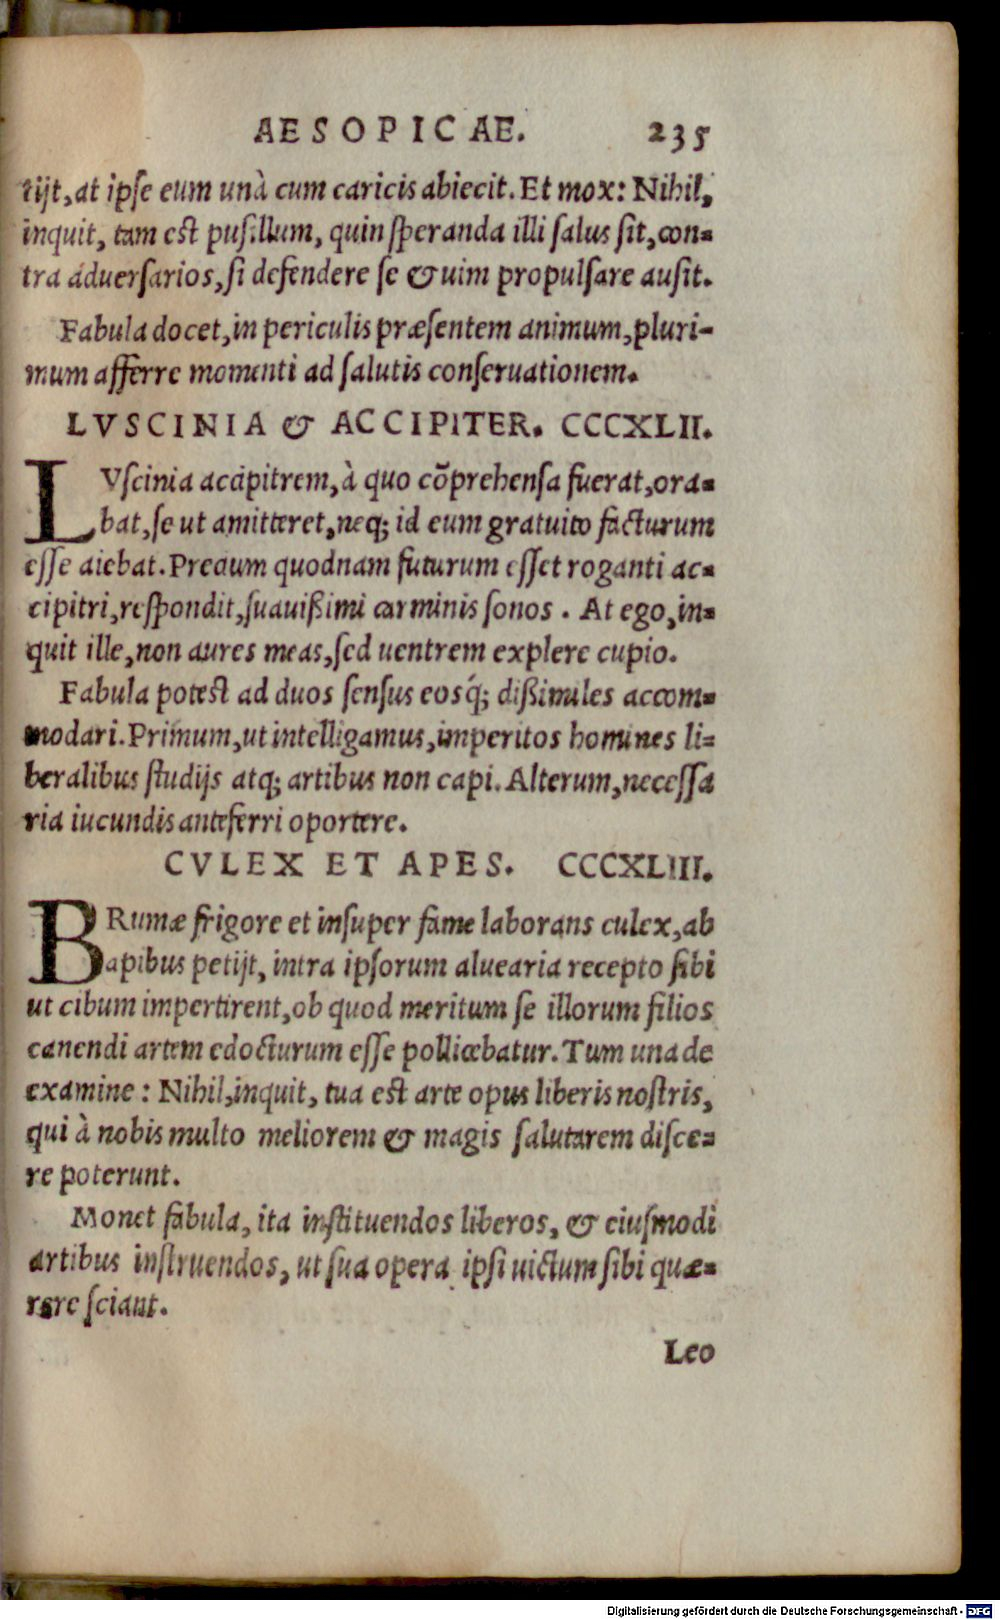 AESOPICAE. 235
tijt, at ipse eum unà cum caricis abiecit. Et mox: Nihil,
inquit, tam est pusillum, quin speranda illi salus sit, con-
tra aduersarios, si defendere se & uim propulsare ausit.
Fabula docet, in periculis præsentem animum, pluri-
mum afferre momenti ad salutis conseruationem.
LVSCINIA & ACCIPITER. CCCXLII.
LVscinia accipitrem, à quo cõprehensa fuerat, ora-
bat, se ut amitteret, neq; id eum gratuito facturum
esse aiebat. Precium quodnam futurum esset roganti ac-
cipitri, respondit, suauißimi carminis sonos. At ego, in-
quit ille, non aures meas, sed uentrem explere cupio.
Fabula potest ad duos sensus eosq́; dißimiles accom-
modari. Primum, ut intelligamus, imperitos homines li-
beralibus studijs atq; artibus non capi. Alterum, necessa
ria iucundis anteferri oportere.
CVLEX ET APES. CCCXLIII.
BRumæ frigore et insuper fame laborans culex, ab
apibus petijt, intra ipsorum aluearia recepto sibi
ut cibum impertirent, ob quod meritum se illorum filios
canendi artem edocturum esse pollicebatur. Tum una de
examine: Nihil, inquit, tua est arte opus liberis nostris,
qui à nobis multo meliorem & magis salutarem disce-
re poterunt.
Monet fabula, ita instituendos liberos, & eiusmodi
artibus instruendos, ut sua opera ipsi uictum sibi quæ-
rere sciant.
Leo
Digitalisierung gefördert durch die Deutsche Forschungsgemeinschaft - DFG